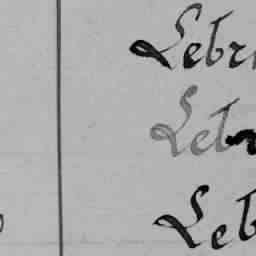 Lebr
Lebr
Leb